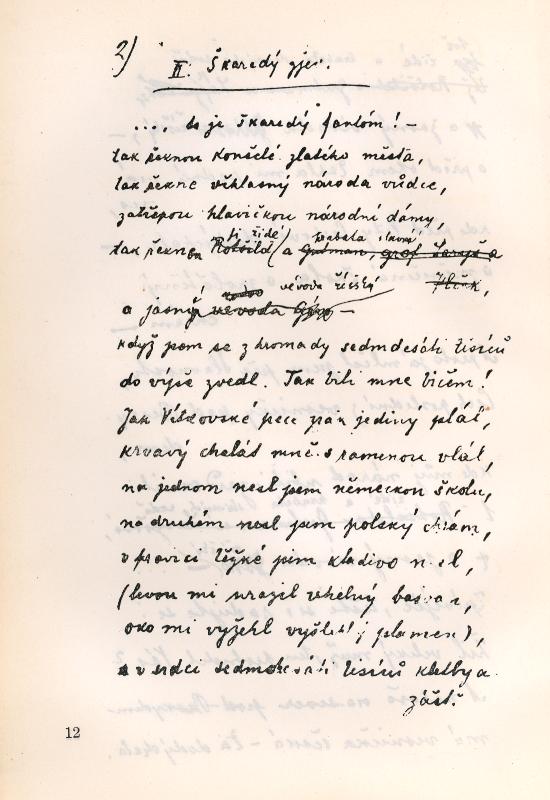 2)
II. Škaredý zjev.
.... to je škaredý fantóm! —
tak řeknou konšelé zlatého města,
tak řekne věhlasný národa vůdce,
zatřepou hlavičkou národní dámy,
ti židé hrabata slavná
tak řeknou Rotšild a Gutman, graf Laryš a
Vlček,
vévoda říšský
a jasný vévoda Géro —
když jsem se z hromady sedmdesáti tisíců
do výše zvedl. Tak bili mne bičem!
Jak Vítkovské pece pán jediný plál,
krvavý chalát mně s ramenou vlál,
na jednom nesl jsem německou školu,
na druhém nesl jsem polský chrám,
v pravici těžké jsem kladivo nesl,
(levou mi urazil uhelný balvan,
oko mi vyžehl vyšlehlý plamen),
a v srdci sedmdesáti tisíců kletby a
zášť.
12